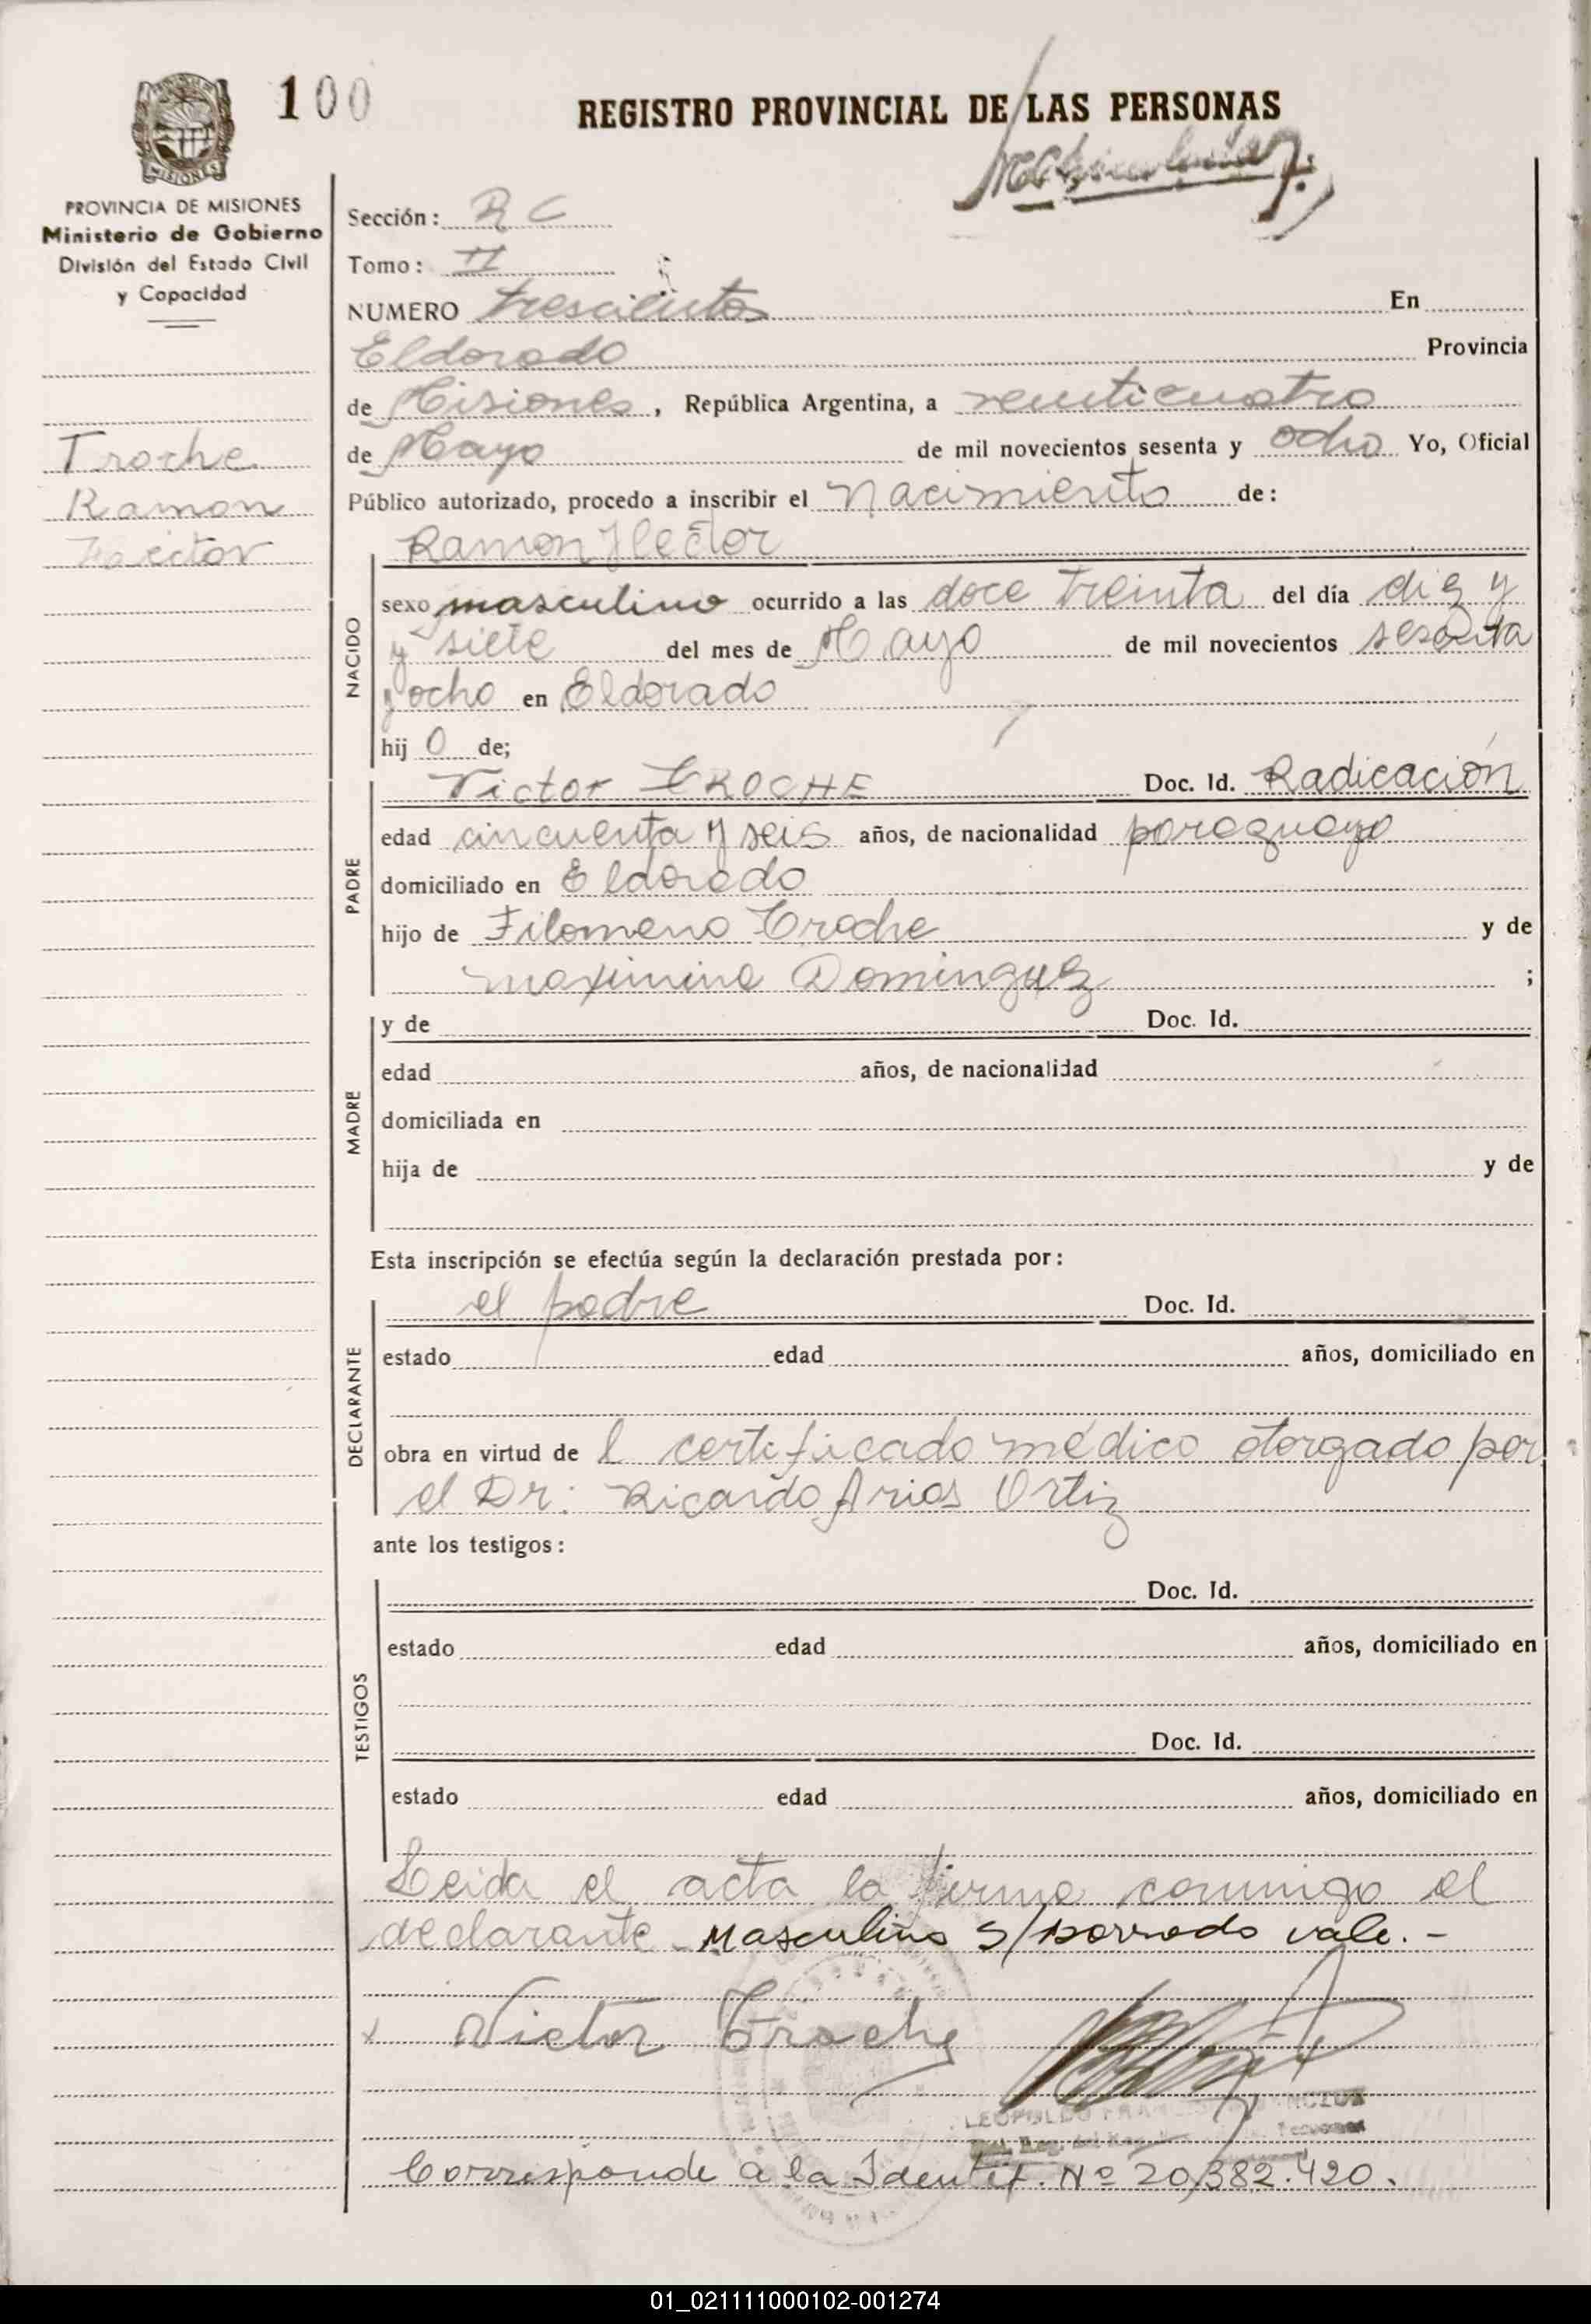 100
REGISTRO PROVINCIAL DE LAS PERSONAS
MISIONES
PROVINCIA DE MISIONES
Ministerio de Gobierno
División del Estado Civil
y Capacidad
Troche
Ramon
Hector
Sección: R C
Tomo: II
NUMERO trescientos En
Eldorado Provincia
de Misiones, República Argentina, a veinticuatro
de Mayo de mil novecientos sesenta y ocho Yo, Oficial
Público autorizado, procedo a inscribir el nacimiento de:
NACIDO
Ramon Hector
sexo masculino ocurrido a las doce treinta del día diez y
y siete del mes de Mayo de mil novecientos sesenta
y ocho en Eldorado
hij o de;
PADRE
Victor TROCHE Doc. Id. Radicación
edad cincuenta y seis años, de nacionalidad paraguayo
domiciliado en Eldorado
hijo de Filomeno Troche y de
Maximina Dominguez ;
MADRE
y de Doc. Id.
edad años, de nacionalidad
domiciliada en
hija de y de
Esta inscripción se efectúa según la declaración prestada por:
DECLARANTE
el padre Doc. Id.
estado edad años, domiciliado en
obra en virtud de l certificado médico otorgado por
el Dr: Ricardo Arias Ortiz
ante los testigos:
TESTIGOS
Doc. Id.
estado edad años, domiciliado en
Doc. Id.
estado edad años, domiciliado en
Leida el acta la firma conmigo el
declarante - Masculino S/borrado vale.-
x Victor Troche
LEOPOLDO
Corresponde a la Identif. Nº 20,382.420.
01_021111000102-001274